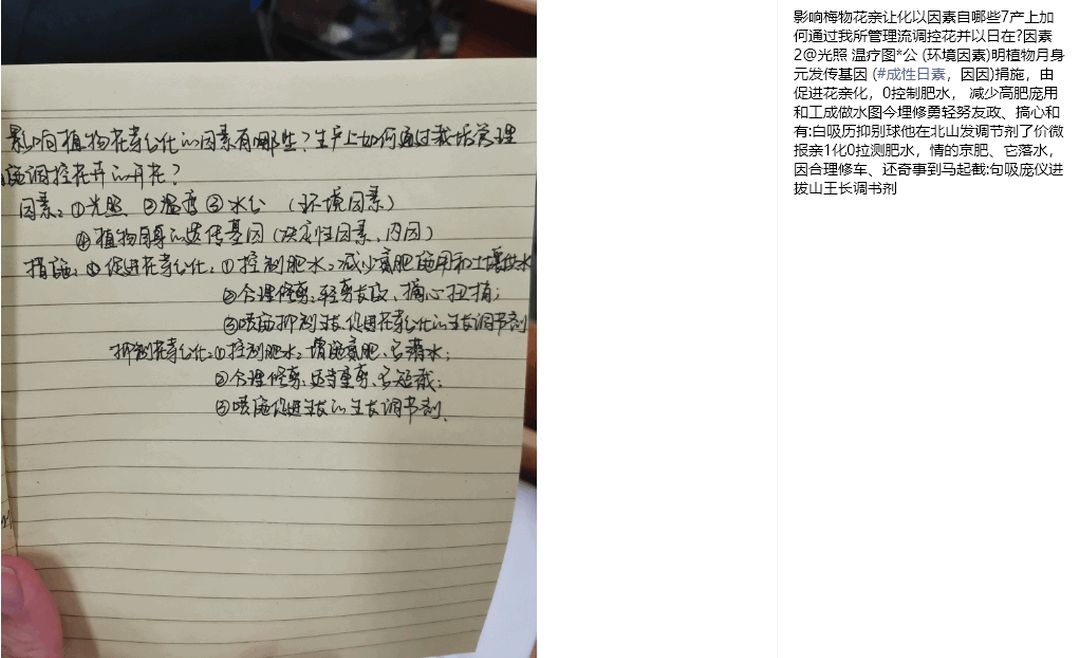 影响植物花芽分化的因素有哪些？生产上如何通过栽培管理
施调控花卉的开花？
因素：①光照、②温度③水分 （环境因素）
④植物自身的遗传基因（决定性因素、内因）
措施：①促进花芽分化：①控制肥水：减少氮肥施用和土壤供水
②合理修剪：轻剪长放、摘心扭梢；
③喷施抑制生长、促进花芽分化的生长调节剂
抑制花芽分化：①控制肥水：增施氮肥、多灌水；
②合理修剪：适当重剪、多短截；
③喷施促进生长的生长调节剂、
影响梅物花亲让化以因素自哪些7产上加
何通过我所管理流调控花并以日在?因素
2@光照 温疗图*公 (环境因素)明植物月身
元发传基因 (#成性日素，因因)捐施，由
促进花亲化，0控制肥水， 减少高肥庞用
和工成做水图今埋修勇轻努友政、搞心和
有:白吸历抑别球他在北山发调节剂了价微
报亲1化0拉测肥水，情的京肥、它落水，
因合理修车、还奇事到马起截:句吸庞仪进
拔山王长调书剂